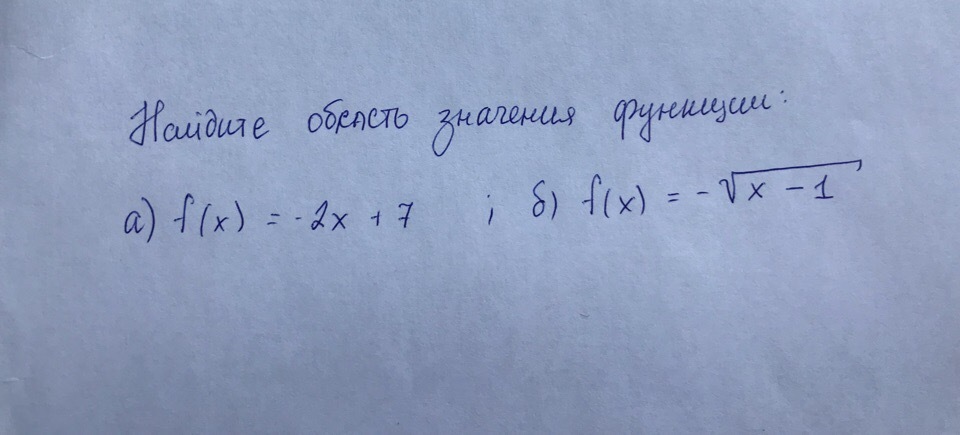 Найдите область значения функции:
а) f(x) = -2x + 7 ; б) f(x) = -√(x - 1)